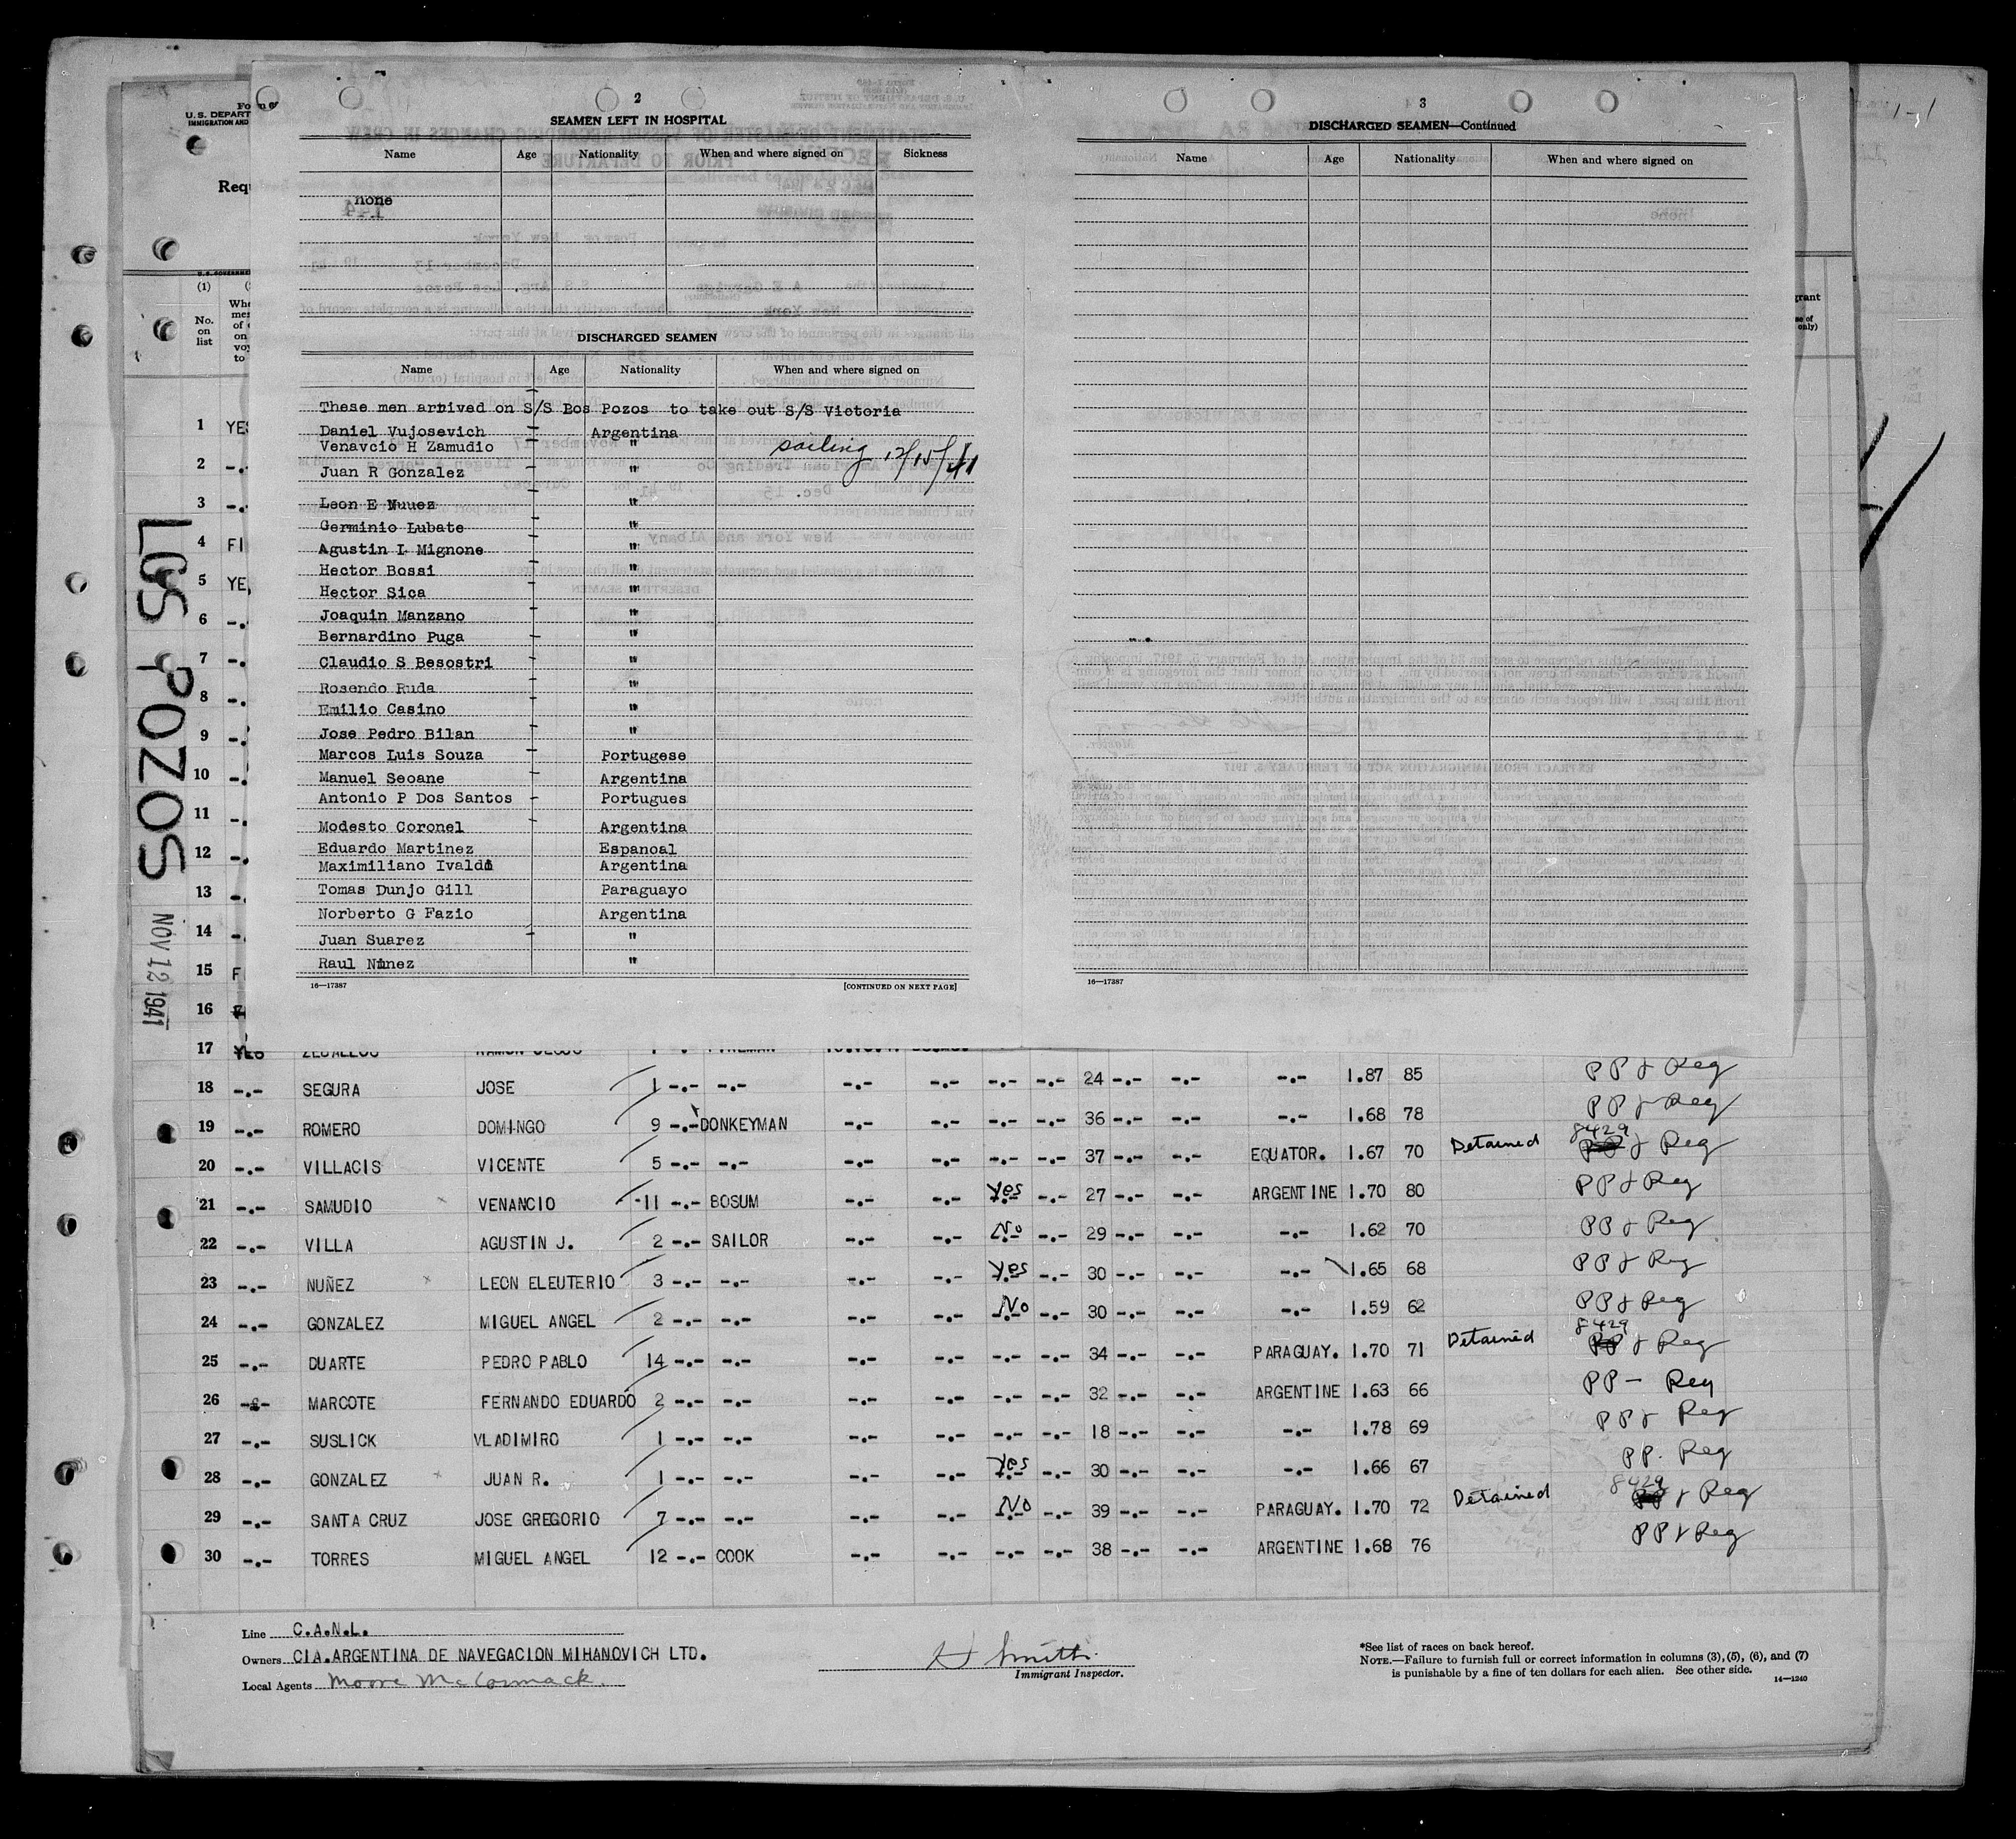 2
SEAMEN LEFT IN HOSPITAL
Name Age Nationality When and where signed on Sickness
none
DISCHARGED SEAMEN
Name Age Nationality When and where signed on
These men arrived on S/S Los Pozos to take out S/S Victoria
Daniel Vujosevich - Argentina
Venavcio H Zamudio - " sailing 12/15/41
Juan R Gonzalez - "
Leon E Nuuez - "
Germinio Lubate - "
Agustin I Mignone - "
Hector Bossi - "
Hector Sica - "
Joaquin Manzano - "
Bernardino Puga - "
Claudio S Besostri - "
Rosendo Ruda - "
Emilio Casino - "
Jose Pedro Bilan - "
Marcos Luis Souza - Portugese
Manuel Seoane - Argentina
Antonio P Dos Santos - Portugues
Modesto Coronel - Argentina
Eduardo Martinez Espanoal
Maximiliano Ivaldi Argentina
Tomas Dunjo Gill Paraguayo
Norberto G Fazio Argentina
Juan Suarez - "
Raul Nunez "
16—17387 [CONTINUED ON NEXT PAGE]
3
DISCHARGED SEAMEN—Continued
Name Age Nationality When and where signed on
16—17387
U.S. DEPART
IMMIGRATION AND
Requ
(1)
No. on list
LOS POZOS
NOV 12 1941
1 YES
2 -.
3 -.
4 FI
5 YE
6 -.
7 -.
8 -.
9 -.
10 -.
11 -.
12 -.
13 -.
14 -.
15 F
16
17 YES ZEBALLOS RAMON JESUS FIREMAN
18 -.- SEGURA JOSE 1 -.- -.- -.- -.- -.- -.- 24 -.- -.- -.- 1.87 85 PP & Reg
19 -.- ROMERO DOMINGO 9 -.- DONKEYMAN -.- -.- -.- -.- 36 -.- -.- -.- 1.68 78 PP & Reg
20 -.- VILLACIS VICENTE 5 -.- -.- -.- -.- -.- -.- 37 -.- -.- EQUATOR. 1.67 70 Detained 8429 PP & Reg
21 -.- SAMUDIO VENANCIO 11 -.- BOSUM -.- -.- Yes -.- 27 -.- -.- ARGENTINE 1.70 80 PP & Reg
22 -.- VILLA AGUSTIN J. 2 -.- SAILOR -.- -.- No -.- 29 -.- -.- -.- 1.62 70 PP & Reg
23 -.- NUÑEZ LEON ELEUTERIO 3 -.- -.- -.- -.- Yes -.- 30 -.- -.- -.- 1.65 68 PP & Reg
24 -.- GONZALEZ MIGUEL ANGEL 2 -.- -.- -.- -.- No -.- 30 -.- -.- -.- 1.59 62 PP & Reg
25 -.- DUARTE PEDRO PABLO 14 -.- -.- -.- -.- -.- -.- 34 -.- -.- PARAGUAY. 1.70 71 Detained 8429 PP & Reg
26 -.- MARCOTE FERNANDO EDUARDO 2 -.- -.- -.- -.- -.- -.- 32 -.- -.- ARGENTINE 1.63 66 PP - Reg
27 -.- SUSLICK VLADIMIRO 1 -.- -.- -.- -.- -.- -.- 18 -.- -.- -.- 1.78 69 PP & Reg
28 -.- GONZALEZ JUAN R. 1 -.- -.- -.- -.- Yes -.- 30 -.- -.- -.- 1.66 67 PP. Reg
29 -.- SANTA CRUZ JOSE GREGORIO 7 -.- -.- -.- -.- No -.- 39 -.- -.- PARAGUAY. 1.70 72 Detained 8429 PP & Reg
30 -.- TORRES MIGUEL ANGEL 12 -.- COOK -.- -.- -.- -.- 38 -.- -.- ARGENTINE 1.68 76 PP & Reg
Line C.A.N.L.
Owners CIA.ARGENTINA DE NAVEGACION MIHANOVICH LTD.
Local Agents Moore McCormack.
H Smith
Immigrant Inspector.
*See list of races on back hereof.
NOTE.—Failure to furnish full or correct information in columns (3), (5), (6), and (7)
is punishable by a fine of ten dollars for each alien. See other side.
14—1240